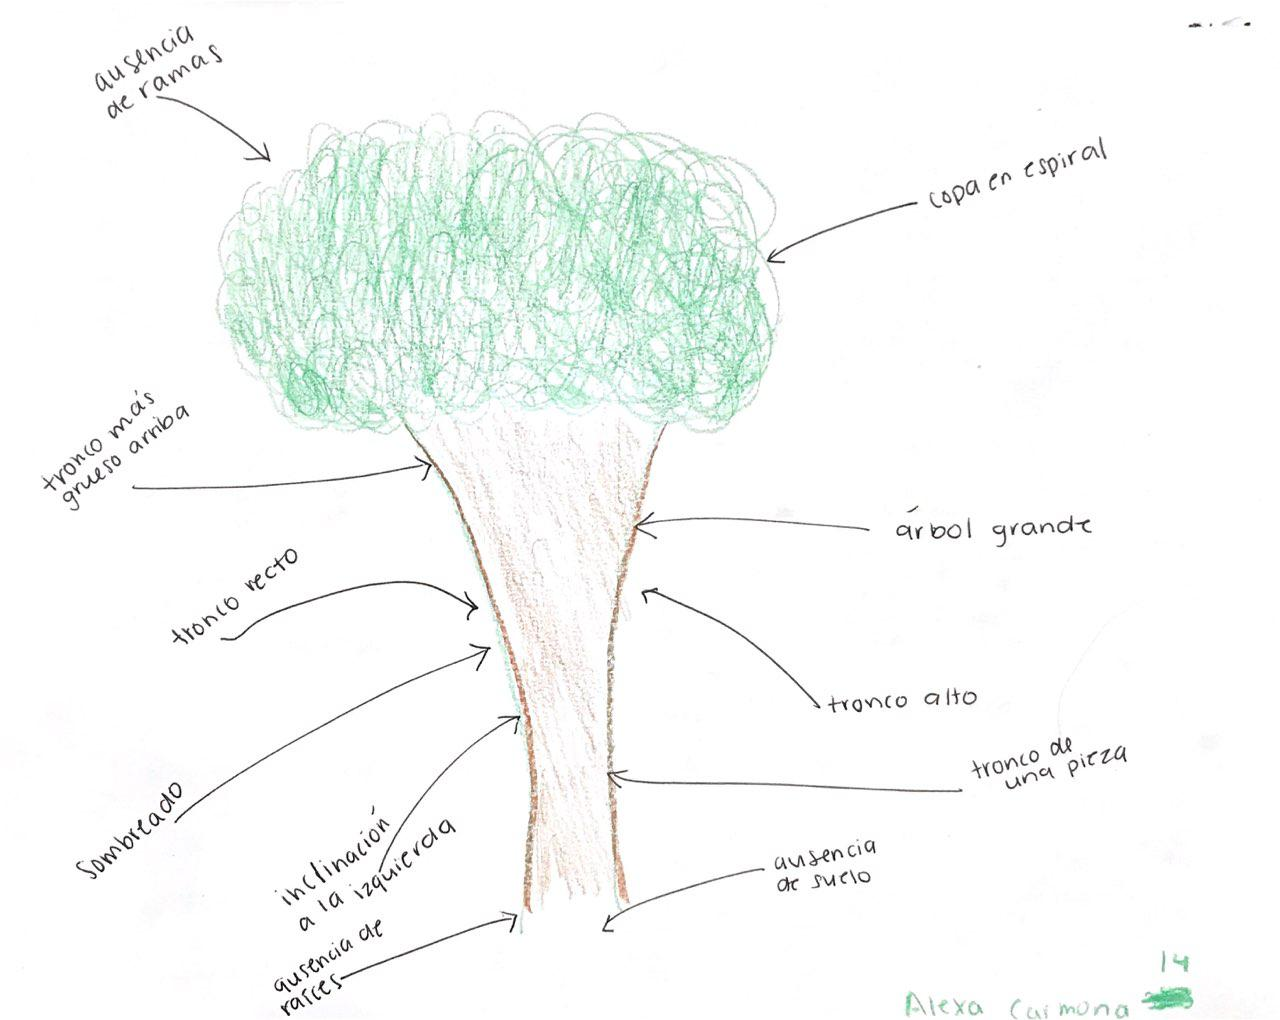 ausencia
de ramas
copa en espiral
tronco más
grueso arriba
árbol grande
tronco recto
tronco alto
tronco de
una pieza
sombreado
inclinación
a la izquierda
ausencia
de suelo
ausencia de
raíces
14
Alexa Carmona